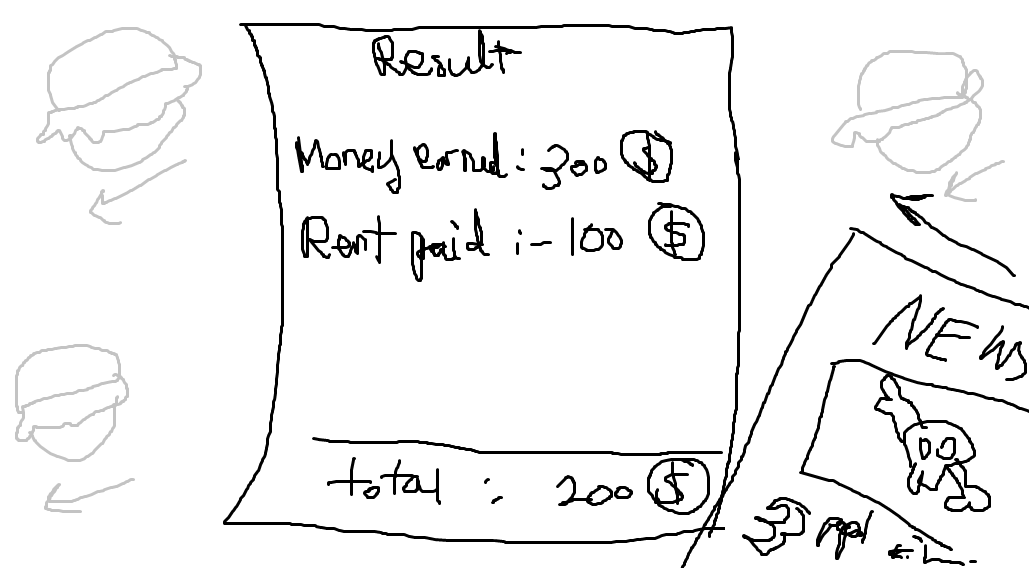 Result
Money earned : 300 $
Rent paid : - 100 $
total : 200 $
NEWS
3 ppl